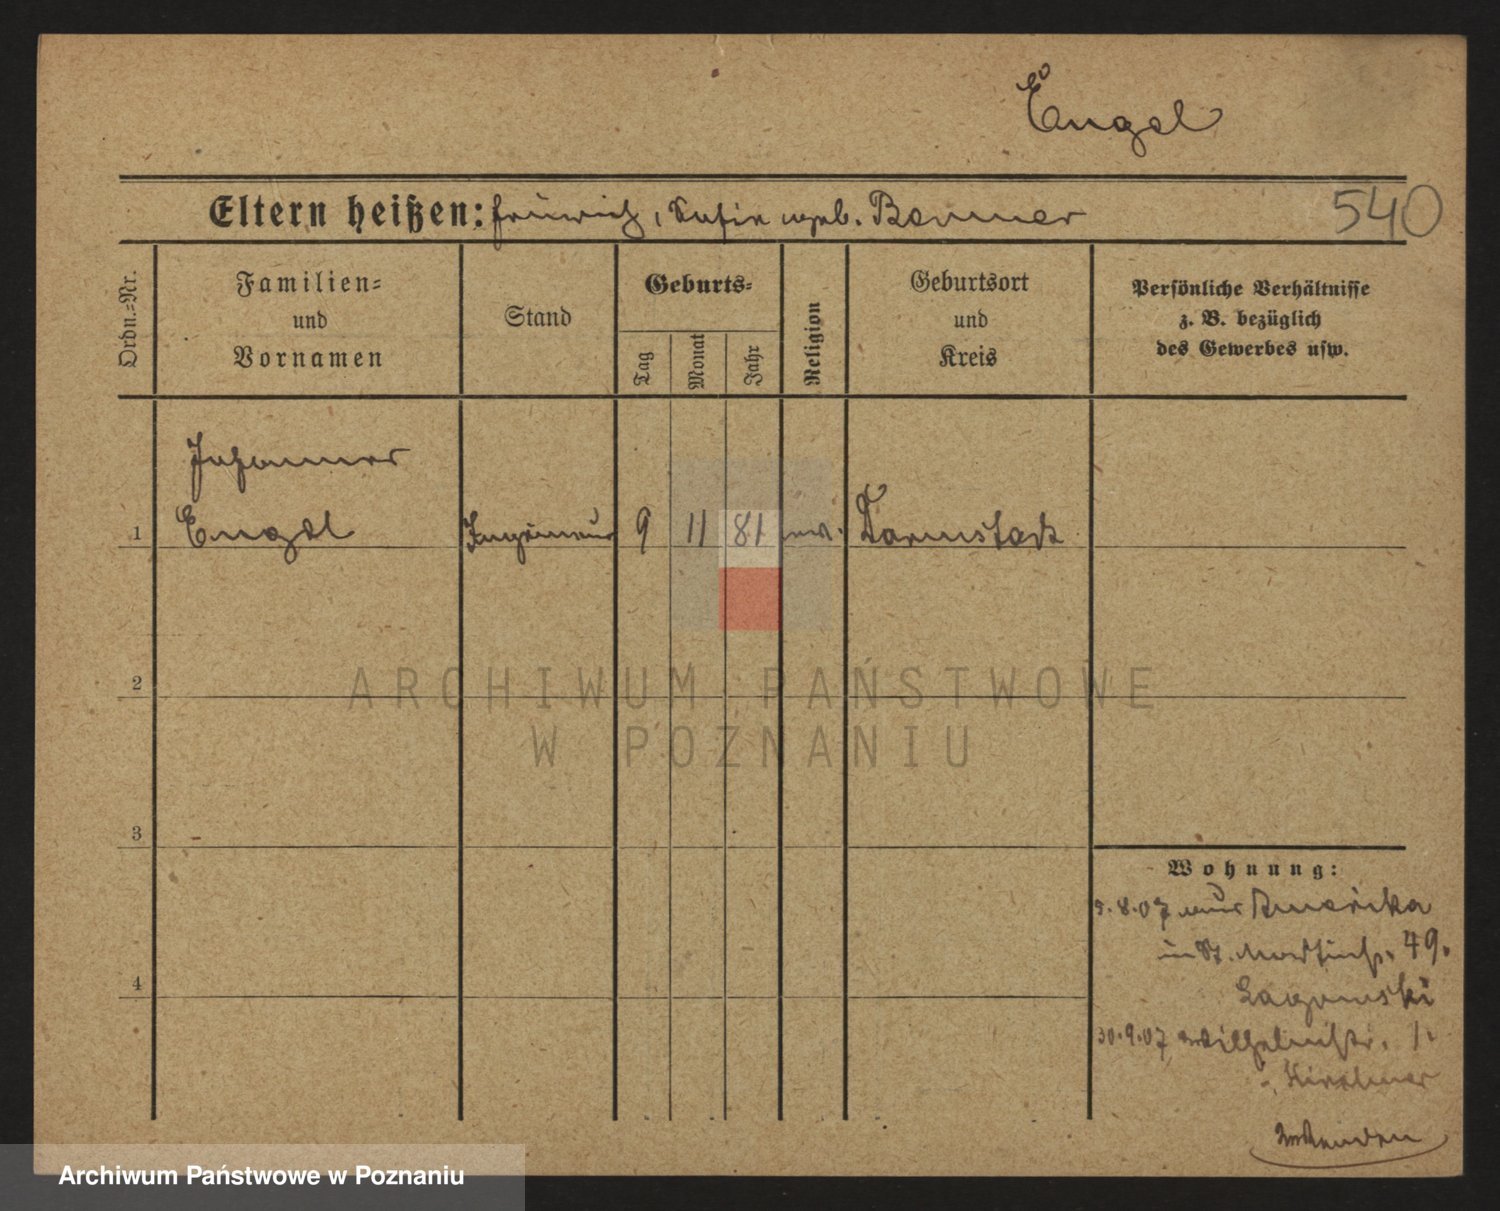 Engel
Eltern heißen: Heinrich, Sofie geb. Benner
540
Ordn.-Nr.
Familien-
und
Vornamen
Stand
Geburts-
Tag
Monat
Jahr
Religion
Geburtsort
und
Kreis
Persönliche Verhältnisse
z. B. bezüglich
des Gewerbes usw.
Johannes
1 Engel Ingenieur 9 11 81 ev. Darmstadt
2
3
4
Wohnung:
9.8.07 aus Amerika
in St. Martinstr. 49.
30.9.07 Wilhelmstr. 1.
ARCHIWUM PAŃSTWOWE
W POZNANIU
Archiwum Państwowe w Poznaniu